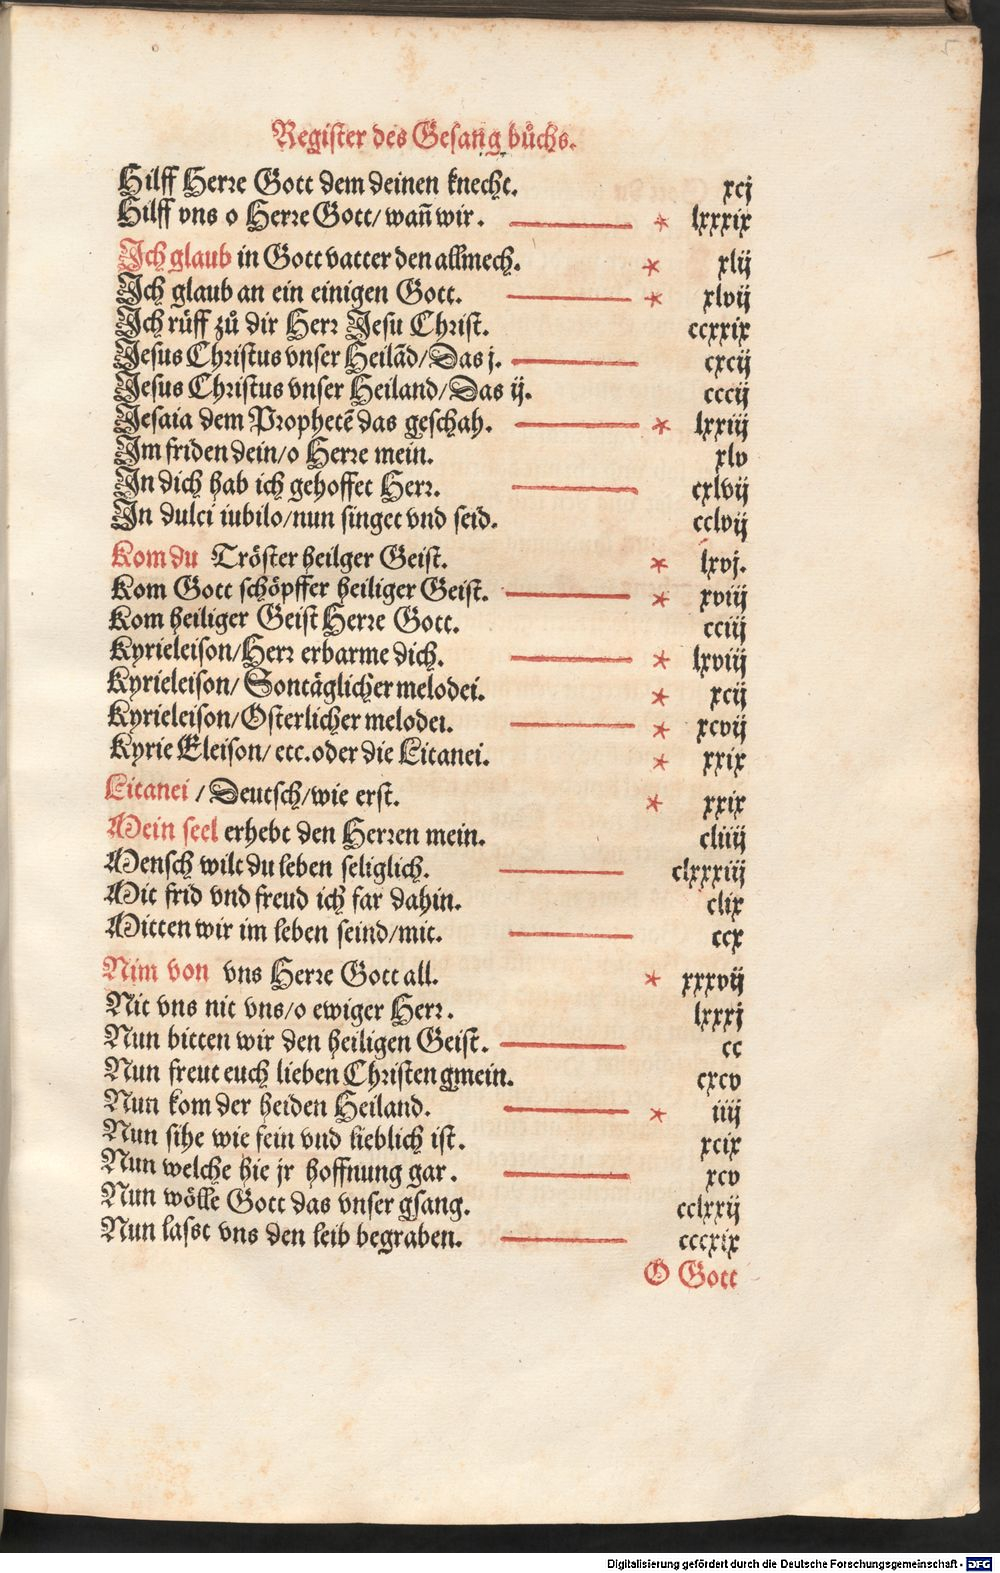 Register des Gesang bůchs.
Hilff Herre Gott dem deinen knecht. xcj
Hilff vns o Herre Gott/ wañ wir. * lxxxix
Ich glaub in Gott vatter den allmech. * xlij
Ich glaub an ein einigen Gott. * xlvij
Ich rüff zů dir Herr Jesu Christ. ccxxix
Jesus Christus vnser Heilãd/ Das j. cxcij
Jesus Christus vnser Heiland/ Das ij. cccij
Jesaia dem Prophetẽ das geschah. * lxxiij
Im friden dein/ o Herre mein. xlv
In dich hab ich gehoffet Herr. cxlvij
In dulci iubilo/ nun singet vnd seid. cclvij
Kom du Tröster heilger Geist. * lxvj.
Kom Gott schöpffer heiliger Geist. * xviij
Kom heiliger Geist Herre Gott. cciij
Kyrieleison/ Herr erbarme dich. * lxviij
Kyrieleison/ Sontäglicher melodei. * xcij
Kyrieleison/ Osterlicher melodei. * xcvij
Kyrie Eleison/ etc. oder die Litanei. * xxix
Litanei / Deutsch/ wie erst. * xxix
Mein seel erhebt den Herren mein. cliiij
Mensch wilt du leben seliglich. clxxxiij
Mit frid vnd freud ich far dahin. clix
Mitten wir im leben seind/ mit. ccx
Nim von vns Herre Gott all. * xxxvij
Nit vns nit vns/ o ewiger Herr. lxxxj
Nun bitten wir den heiligen Geist. cc
Nun freut euch lieben Christen gmein. cxcv
Nun kom der heiden Heiland. * iiij
Nun sihe wie fein vnd lieblich ist. xcix
Nun welche hie jr hoffnung gar. xcv
Nun wölle Gott das vnser gsang. cclxxij
Nun lasst vns den leib begraben. cccxix
O Gott
Digitalisierung gefördert durch die Deutsche Forschungsgemeinschaft - DFG